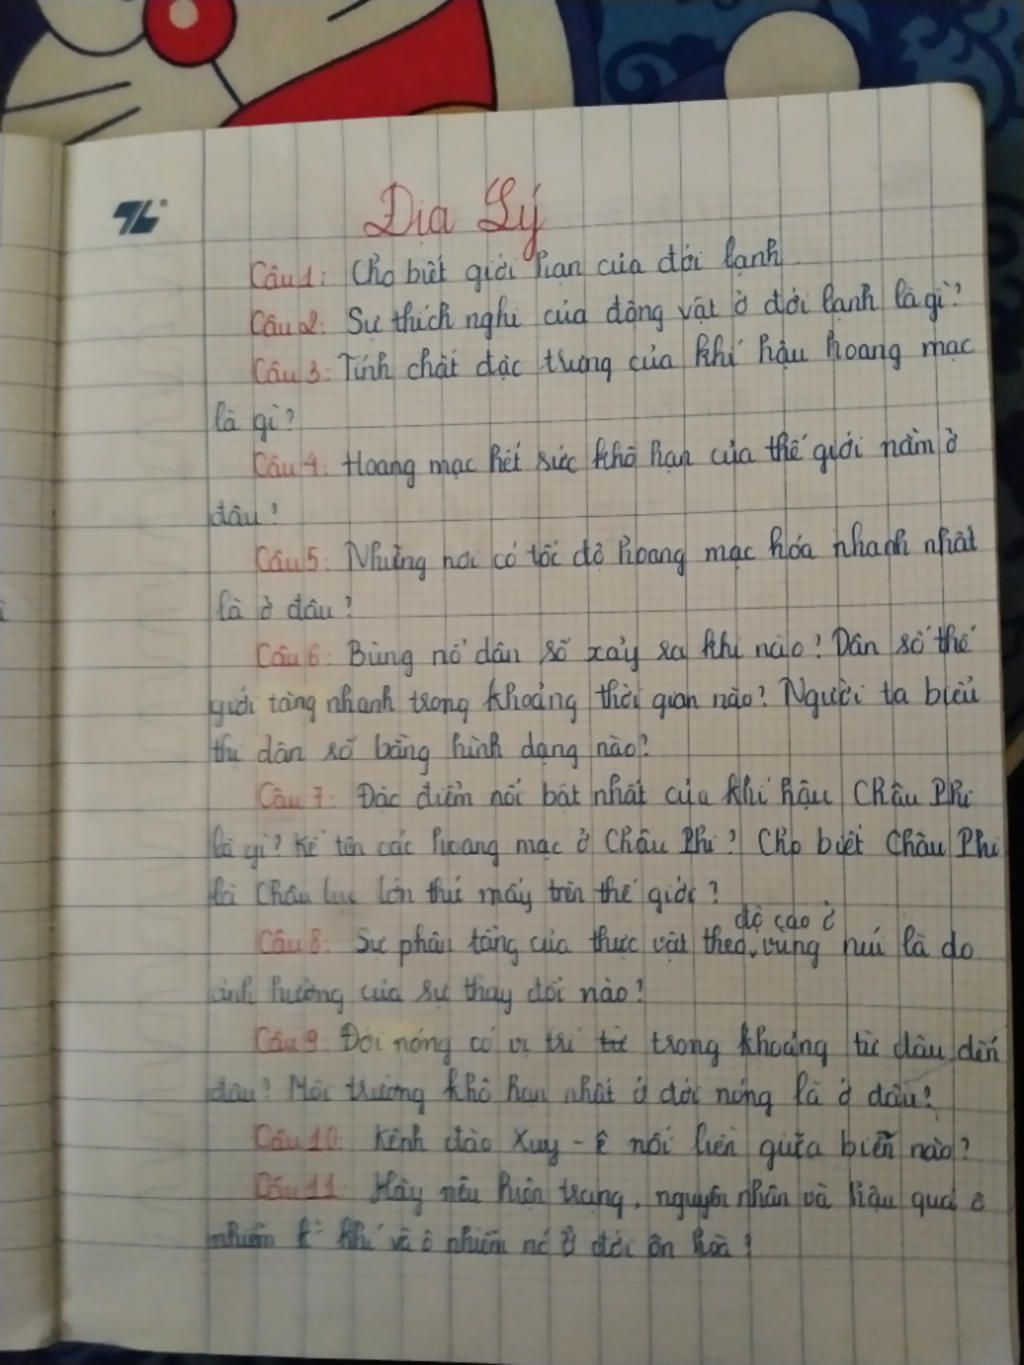 TL
Địa Lý
Câu 1: Cho biết giới hạn của đới lạnh
Câu 2: Sự thích nghi của động vật ở đới lạnh là gì?
Câu 3: Tính chất đặc trưng của khí hậu hoang mạc
là gì?
Câu 4: Hoang mạc hết sức khô hạn của thế giới nằm ở
đâu?
Câu 5: Những nơi có tốc độ hoang mạc hóa nhanh nhất
là ở đâu?
Câu 6: Bùng nổ dân số xảy ra khi nào? Dân số thế
giới tăng nhanh trong khoảng thời gian nào? Người ta biểu
thị dân số bằng hình dạng nào?
Câu 7: Đặc điểm nổi bật nhất của khí hậu Châu Phi
là gì? Kể tên các hoang mạc ở Châu Phi? Cho biết Châu Phi
là Châu lục lớn thứ mấy trên thế giới?
độ cao ở
Câu 8: Sự phân tầng của thực vật theo vùng núi là do
ảnh hưởng của sự thay đổi nào?
Câu 9: Đới nóng có vị trí từ trong khoảng từ đâu đến
đâu? Môi trường khô hạn nhất ở đới nóng là ở đâu?
Câu 10: Kênh đào Xuy-ê nối liền giữa biển nào?
Câu 11: Hãy nêu hiện trạng, nguyên nhân và hậu quả ô
nhiễm k² khí và ô nhiễm nc̛ ở đới ôn hoà?